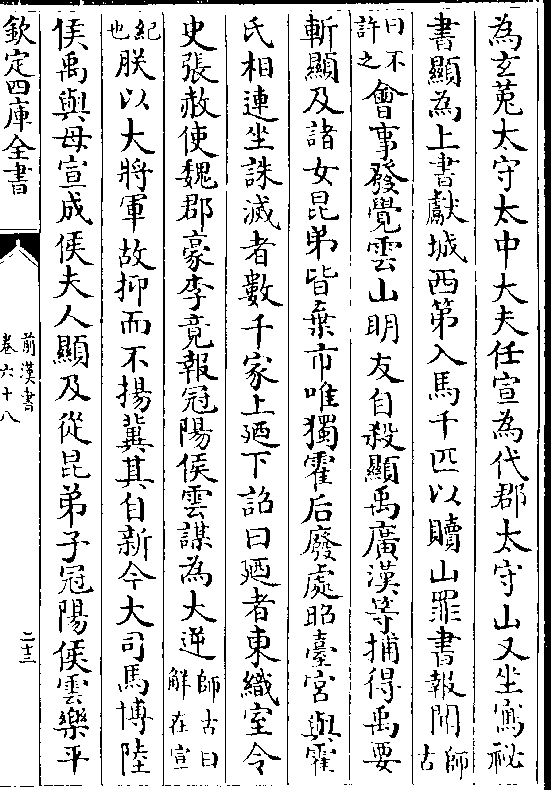 為玄菟太守太中大夫任宣為代郡太守山又坐寫祕
書顯為上書獻城西第入馬千匹以贖山罪書報聞師古
曰不許之會事發覺雲山明友自殺顯禹廣漢等捕得禹要
斬顯及諸女昆弟皆棄市唯獨霍后廢處昭臺宮與霍
氏相連坐誅滅者數千家上廼下詔曰廼者東織室令
史張赦使魏郡豪李竟報冠陽侯雲謀為大逆師古曰解在宣
紀也朕以大將軍故抑而不揚冀其自新今大司馬博陸
侯禹與母宣成侯夫人顯及從昆弟子冠陽侯雲樂平
欽定四庫全書
前漢書
卷六十八
二十三